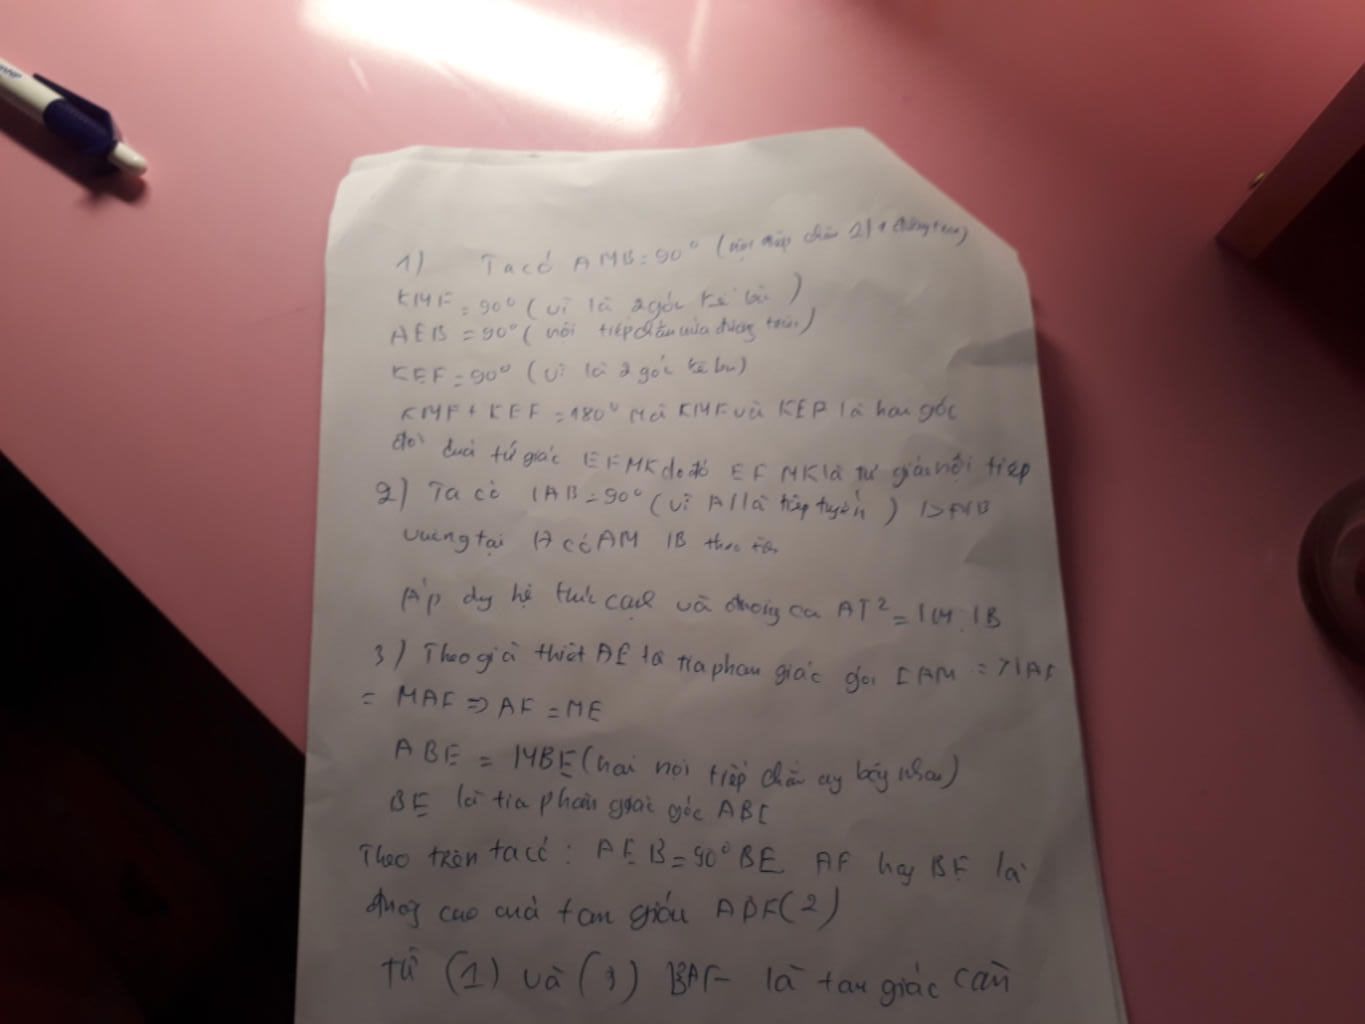 1) Ta có AMB = 90° (nội tiếp chắn 2
KMF = 90° (vì là 2 góc kề bù)
AEB = 90° (nội tiếp chắn nửa đường tròn)
KEF = 90° (vì là 2 góc kề bù)
KMF + KEF = 180° Mà KMF và KEF là hai góc
đối tứ giác EFMK do đó EFMK là tứ giác nội tiếp
2) Ta có IAB = 90° (vì AI là tiếp tuyến)
vuông tại A có AM IB theo
Áp hệ thức và AI² = IM.IB
3) Theo giả thiết AE là tia phân giác góc IAM => IAE
= MAE => AE = ME
ABE = MBE (hai nội tiếp chắn bằng nhau)
BE là tia phân giác góc ABE
Theo trên ta có: AEB = 90° BE AF hay BE là
đường cao của tam giác ABF (2)
Từ (1) và BAF là tam giác cân